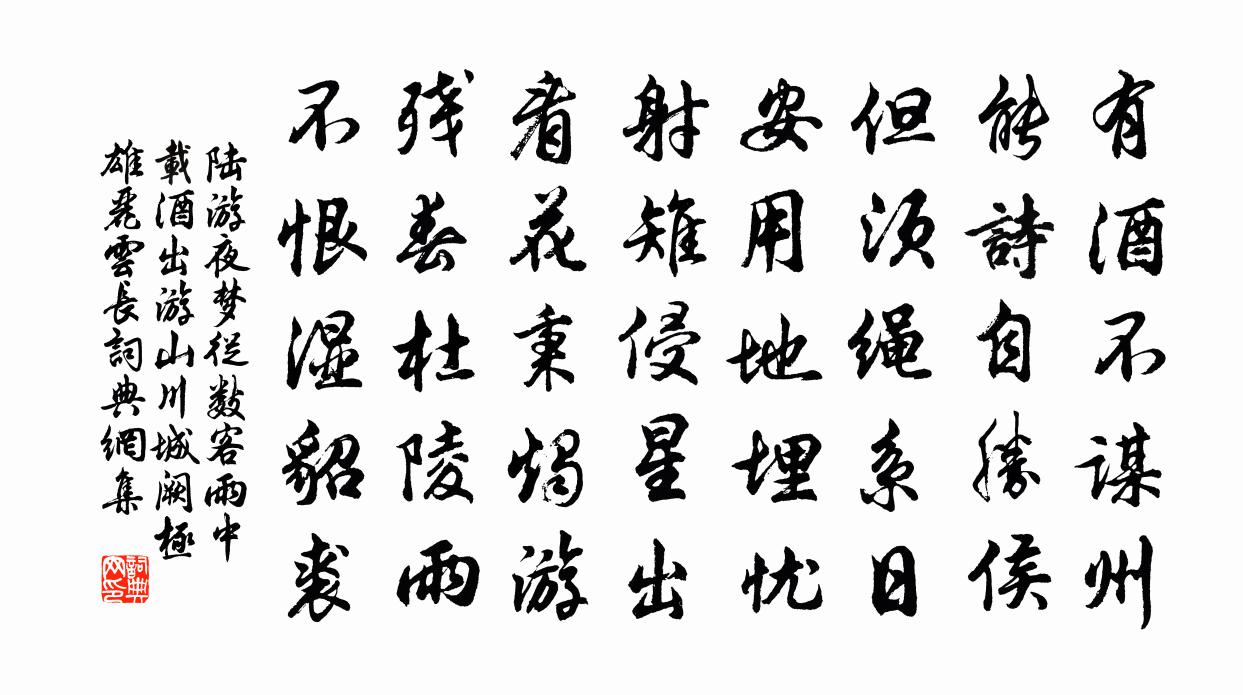 有酒不谋州
能詩自勝侯
但须绳系日
安用地埋忧
射雉侵星出
看花秉烛游
残春杜陵雨
不恨湿貂裘
陆游夜梦従数客雨中
載酒出游山川城阙極
雄麗雲長詞典網集
詞典
网